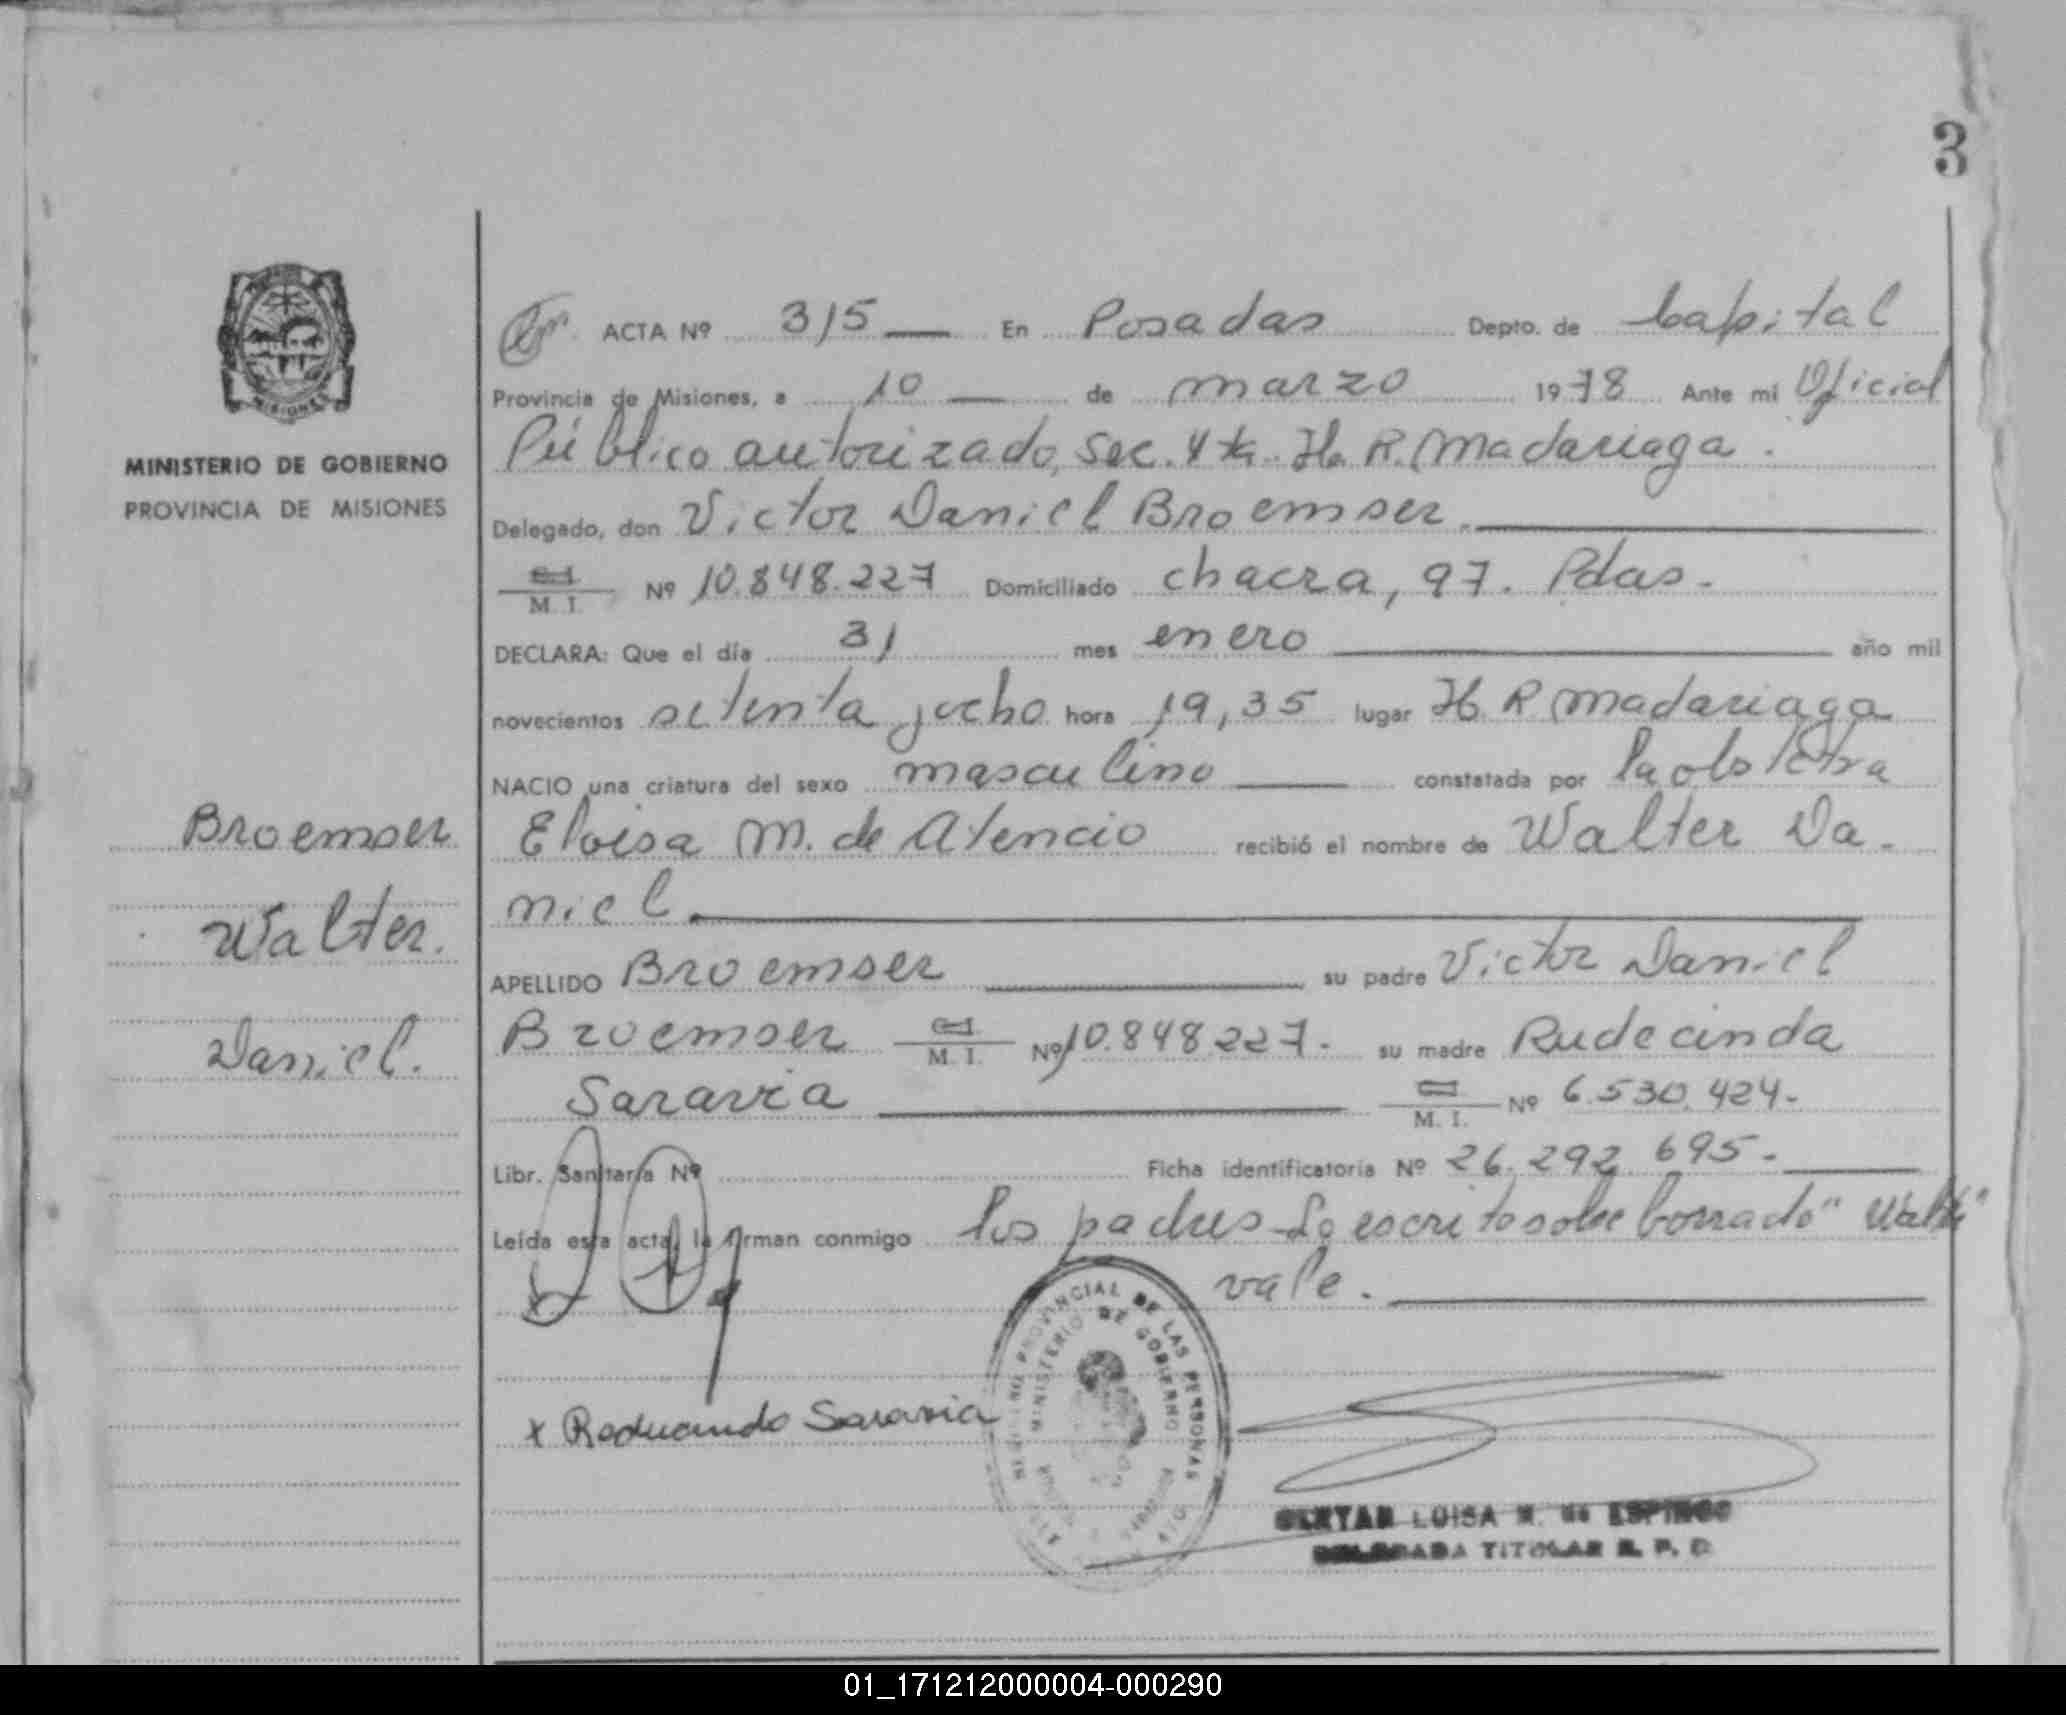 3
MISIONES
MINISTERIO DE GOBIERNO
PROVINCIA DE MISIONES
Broemser
Walter.
Daniel.
ACTA Nº 315 En Posadas Depto. de Capital
Provincia de Misiones, a 10 de marzo 1978 Ante mi Oficial
Público autorizado, Sec. 4ta. H. R. Madariaga.
Delegado, don Victor Daniel Broemser.
M. I. Nº 10.848.227 Domiciliado chacra, 97. Pdas.
DECLARA: Que el día 31 mes enero año mil
novecientos setenta y ocho hora 19,35 lugar H. R Madariaga
NACIO una criatura del sexo masculino constatada por la obstetra
Eloisa M. de Atencio recibió el nombre de Walter Da-
niel
APELLIDO Broemser su padre Victor Daniel
Broemser M. I. Nº 10.848.227. su madre Rudecinda
Saravia M. I. Nº 6.530.424.
Libr. Sanitaria Nº Ficha identificatoria Nº 26.292.695.
Leída esta acta, la firman conmigo los padres Lo escrito sobre borrado "Walter"
vale.
PROVINCIAL DE LAS PERSONAS
MINISTERIO DE GOBIERNO
x Saravia
LUISA M. de ESPINCO
DELEGADA TITULAR R. P. P.
01_171212000004-000290